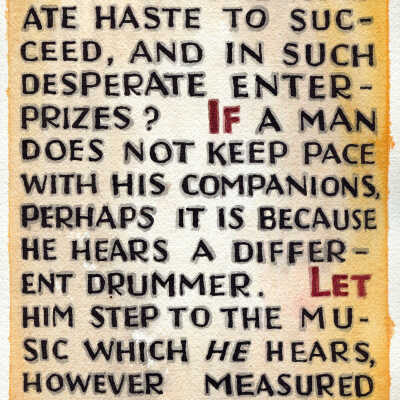 ATE HASTE TO SUC-
CEED, AND IN SUCH
DESPERATE ENTER-
PRIZES? IF A MAN
DOES NOT KEEP PACE
WITH HIS COMPANIONS,
PERHAPS IT IS BECAUSE
HE HEARS A DIFFER-
ENT DRUMMER. LET
HIM STEP TO THE MU-
SIC WHICH HE HEARS,
HOWEVER MEASURED